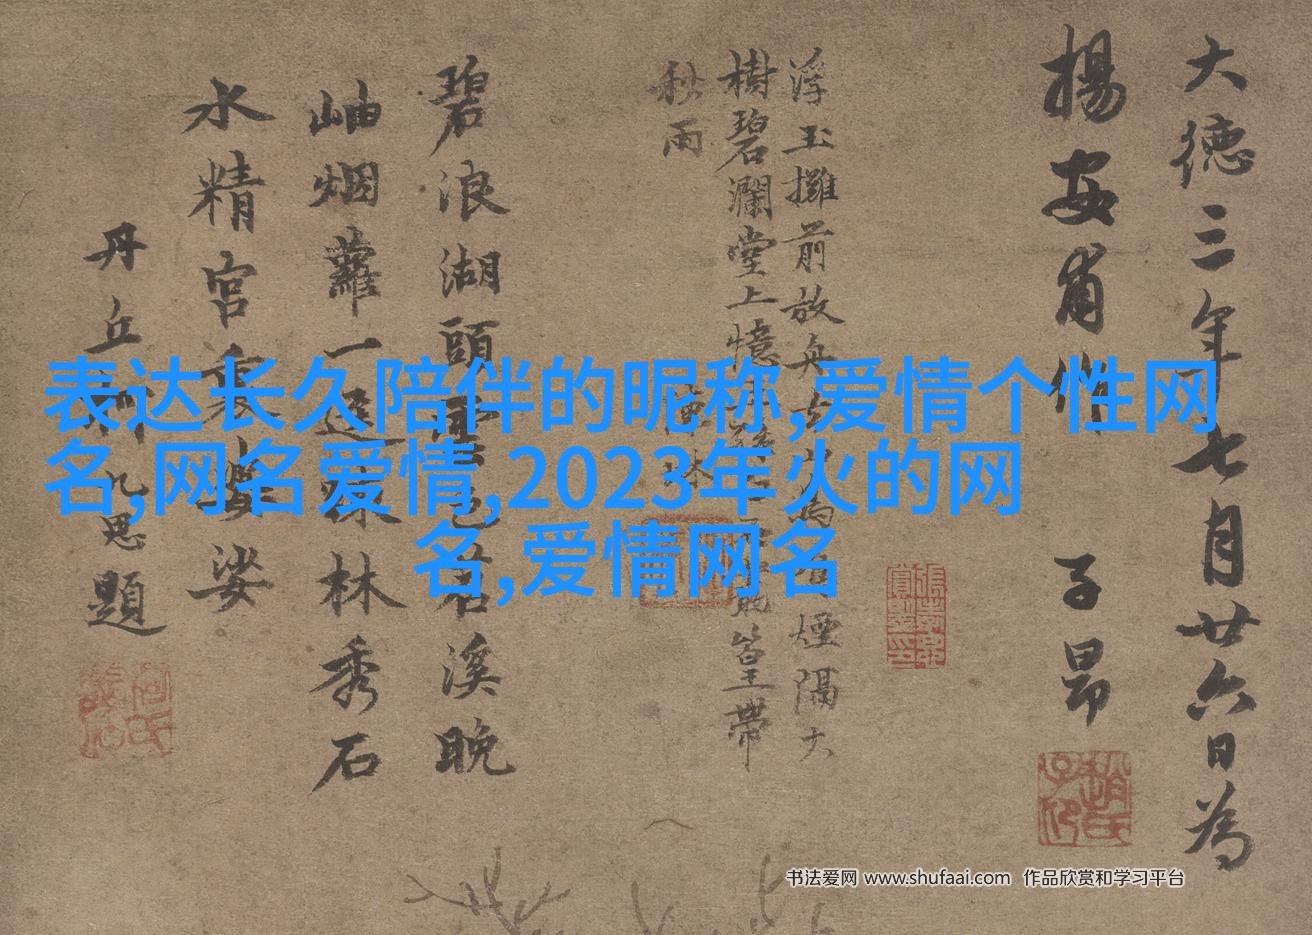 表达长久陪伴的昵称,爱情个性网
名,网名爱情,2023年火的网
名,爱情网名
大德三年七月廿六日為
揚安甫作 子昂
浮玉攤前放舟去山為煙隔大
樹碧瀾堂上憶篁帶
秋雨
碧浪湖頭雲色若溪晚
岫烟蘿一逕林秀石
水精宮裏娑
丹丘柯九思題
书法爱网 www.shufaai.com 作品欣赏和学习平台